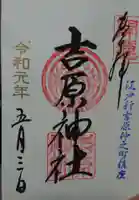 奉拝
江戸新吉原仲之町鎮座
吉原神社
令和元年
五月 日